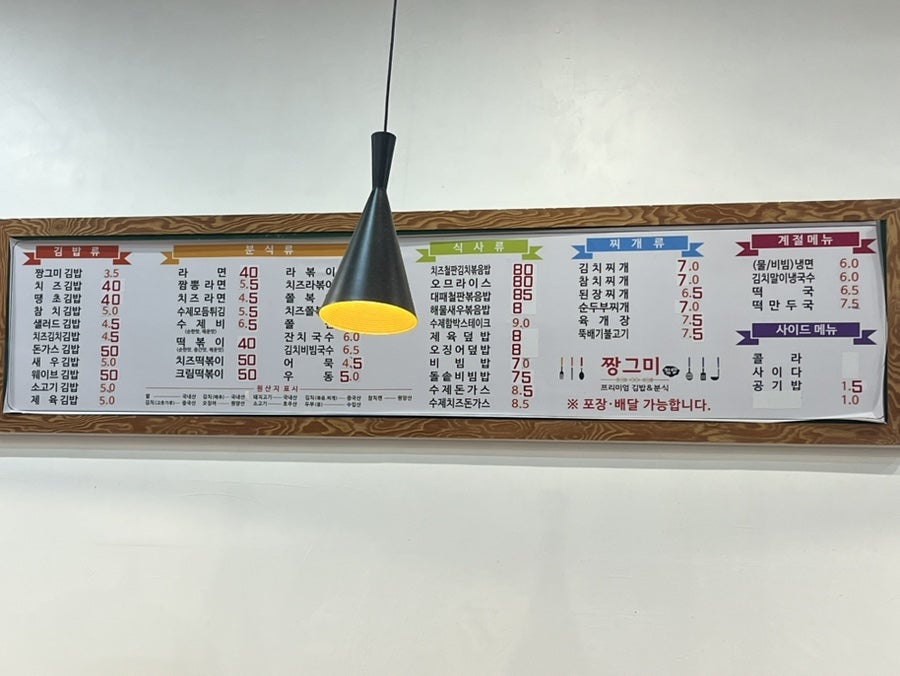 김밥류
짱그미김밥 3.5
치즈김밥 40
땡초김밥 40
참치김밥 5.0
샐러드김밥 4.5
치즈김치김밥 4.5
돈가스김밥 50
새우김밥 5.0
웨이브김밥 50
소고기김밥 5.0
제육김밥 5.0
분식류
라면 40
짬뽕라면 5.5
치즈라면 4.5
수제모듬튀김 5.5
수제비 6.5
떡볶이 40
치즈떡볶이 50
크림떡볶이 50
라볶이
치즈라볶이
쫄볶
치즈쫄볶
쫄
잔치국수 6.0
김치비빔국수 6.5
어묵 4.5
우동 5.0
원산지표시
식사류
치즈철판김치볶음밥 80
오므라이스 80
대패철판볶음밥 85
해물새우볶음밥 8
수제함박스테이크 9.0
제육덮밥 8
오징어덮밥 8
비빔밥 70
돌솥비빔밥 75
수제돈가스 8.5
수제치즈돈가스 8.5
찌개류
김치찌개 7.0
참치찌개 7.0
된장찌개 6.5
순두부찌개 7.0
육개장 7.5
뚝배기불고기 7.5
짱그미
프리미엄 김밥&분식
※ 포장·배달 가능합니다.
계절메뉴
(물/비빔)냉면 6.0
김치말이냉국수 6.0
떡국 6.5
떡만두국 7.5
사이드 메뉴
콜라
사이다 1.5
공기밥 1.0